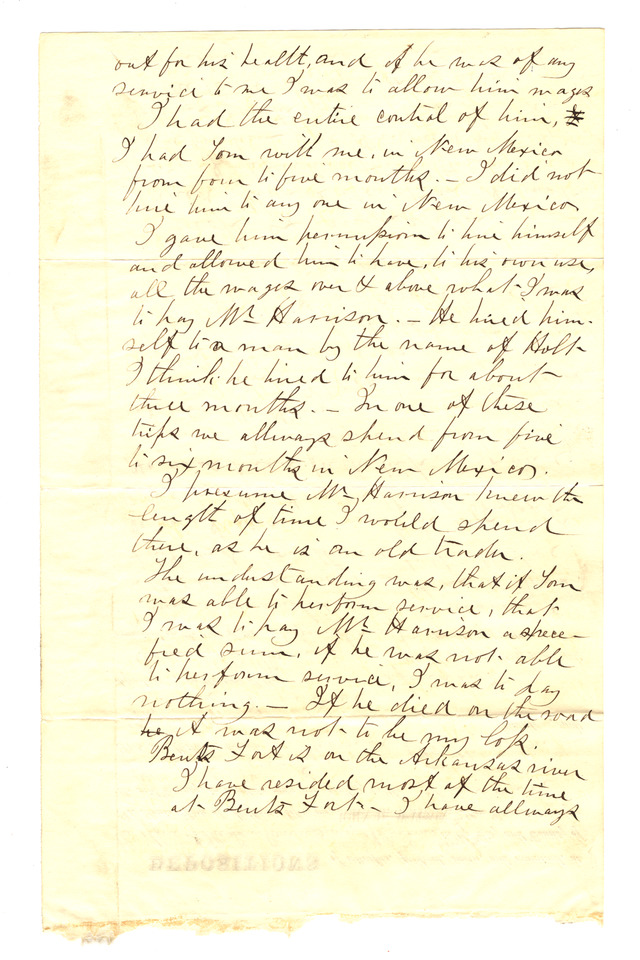 out for his health, and if he was of any
service to me I was to allow him wages
I had the entire control of him,
I had Tom with me, in New Mexico
from four to five months. – I did not
hire him to any one in New Mexico
I gave him permission to hire himself
and allowed him to have, to his own use,
all the wages over & above what I was
to pay Mr Harrison. – He hired him-
self to a man by the name of Holt
I think he hired to him for about
three months. – In one of these
trips we allways spend from five
to six months in New Mexico.
I presume Mr Harrison knew the
length of time I would spend
there, as he is an old trader.
The understanding was, that if Tom
was able to perform service, that
I was to pay Mr Harrison a spece-
fied sum, if he was not able
to perform service, I was to pay
nothing. – If he died on the road
he it was not to be my loss.
Bents Fort is on the Arkansas river
I have resided most of the time
at Bents Fort – I have allways
DEPOSITIONS